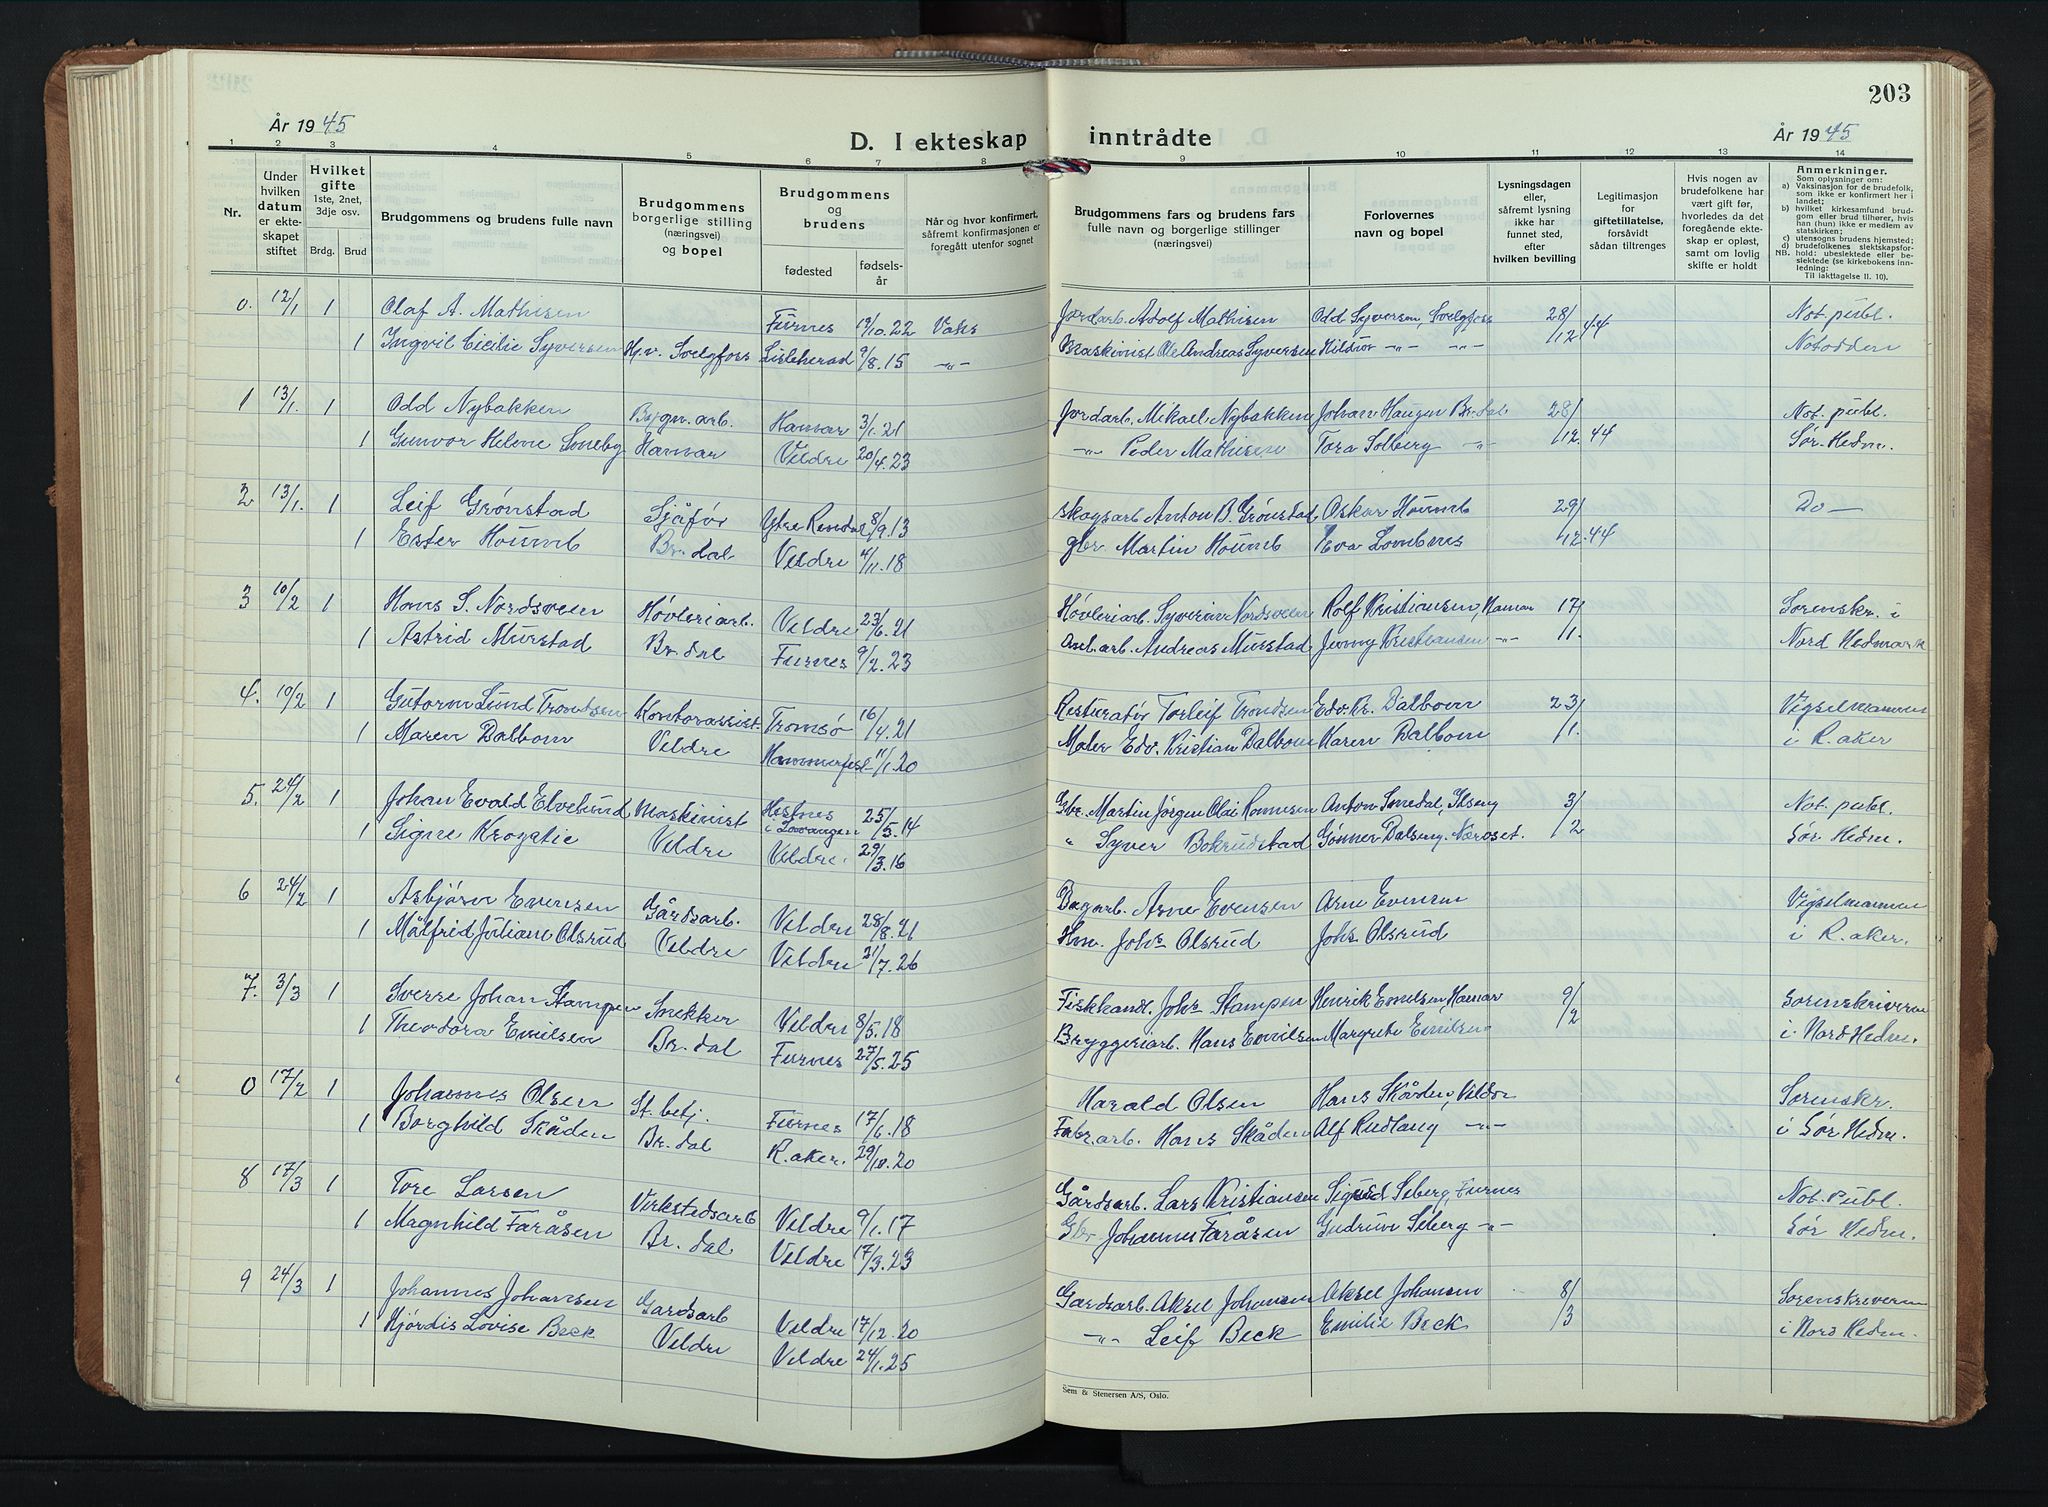 203
År 1945
D. I ekteskap inntrådte
År 1945
1 2 3 4 5 6 7 8 9 10 11 12 13 14
Nr.
Under hvilken datum er ekteskapet stiftet
Hvilket gifte 1ste, 2net, 3dje osv.
Brdg. Brud
Brudgommens og brudens fulle navn
Brudgommens borgerlige stilling (næringsvei) og bopel
Brudgommens og brudens
fødested
fødselsår
Når og hvor konfirmert, såfremt konfirmasjonen er foregått utenfor sognet
Brudgommens fars og brudens fars fulle navn og borgerlige stillinger (næringsvei)
Forlovernes navn og bopel
Lysningsdagen eller, såfremt lysning ikke har funnet sted, efter hvilken bevilling
Legitimasjon for giftetillatelse, forsåvidt sådan tiltrenges
Hvis nogen av brudefolkene har vært gift før, hvorledes da det foregående ekteskap er opløst, samt om lovlig skifte er holdt
Anmerkninger.
Som oplysninger om:
a) Vaksinasjon for de brudefolk, som ikke er konfirmert her i landet;
b) hvilket kirkesamfund brudgom eller brud tilhører, hvis han (hun) ikke er medlem av statskirken;
c) utensogns brudens hjemsted;
d) brudefolkenes slektskapsforhold: ubeslektede eller beslektede (se kirkebokens innledning:
NB.
Til iakttagelse II. 10).
0. 12/1 1 Olaf A. Mathisen Furnes 19/10.22 Vaks Jordarb. Adolf Mathisen Odd Syversen, Svelgfoss 28/12 44 Not. publ.
1 Ingvil Cicilie Syversen H.v. Svelgfoss Lisleherad 9/8.15 -"- Maskinist Ole Andreas Syversen Hildur -"- -"- Notodden
1 13/1. 1 Odd Nybakken Bygn.arb. Hamar 3/1.21 Jordarb. Mikael Nybakken Johan Haugen Br.dal 28/12.44 Not. publ.
1 Gunvor Helene Smeby Hamar Veldre 20/4.23 -"- Peder Mathisen Tora Solberg -"- Sør-Hedm.
2 13/1. 1 Leif Grønstad Sjåfør Ytre Rendal 8/9.13 Skogsarb. Anton B. Grønstad Oskar Houmb 29/12.44 Do —
1 Ester Houmb Br.dal Veldre 4/11.18 gbr. Martin Houmb Eva Lombnes
3 10/2 1 Hans S. Nordsveen Høvleriarb. Veldre 23/6.21 Høvleriarb. Syverin Nordsveen Rolf Kristiansen, Hamar 17/11. Sorenskr. i
1 Astrid Murstad Br.dal Furnes 9/2.23 Anl.arb. Andreas Murstad Jenny Kristiansen -"- Nord Hedmark
4. 10/2 1 Gutorm Lund Trondsen Kontorassist. Tromsø 16/4.21 Resturatør Torleif Trondsen Edv. Kr. Dalbom 23/1. Vigselmannen
1 Maren Dalbom Veldre Hammerfest 11/1.20 Maler Edv. Kristian Dalbom Karen Dalbom i R.aker
5. 24/2 1 Johan Evald Elvelund Maskinist Hestnes i Lavangen 25/5.14 Gbr. Martin Jørgen Olai Ronnesen Anton Smedal, Ilseng 3/2 Not. publ.
1 Signe Krogstie Veldre Veldre. 29/3.16 " Syver Bokrudstad Gønner Dalseng. Næroset. Sør Hedm.
6 24/2 1 Asbjørn Evensen Gårdsarb. Veldre 28/8.21 Bagarb. Arne Evensen Arne Evensen Vigselmannen
1 Målfrid Juliane Olsrud Veldre Veldre 21/7.26 Hm. Johs Olsrud Johs Olsrud i R.aker.
7. 3/3 1 Sverre Johan Stampen Snekker Veldre 8/5.18 Fiskhandl. Johs Stampen Henrik Emilsen, Hamar 9/2 Sorenskriveren
1 Theodora Emilsen Br.dal Furnes 27/5.25 Bryggeriarb. Hans Emilsen Margrete Emilsen i Nord Hedm.
0 17/2 1 Johannes Olsen St.betj. Furnes 17/6.18 Harald Olsen Hans Skåden, Veldre Sorenskr.
1 Borghild Skåden Br.dal R.aker. 29/10.20 Fabr.arb. Hans Skåden Alf Rudlang -"- i Sør Hedm.
8 17/3 1 Tore Larsen Verkstedsarb Veldre 9/1.17 Gårdsarb. Lars Kristiansen Sigurd Seberg, Furnes Not. Publ.
1 Magnhild Faråsen Br.dal Veldre 17/3.23 Gbr Johannes Faråsen Gudrun Seberg -"- Sør Hedm.
9 24/3 1 Johannes Johansen Gardsarb Veldre 17/12.20 Gardsarb. Aksel Johansen Aksel Johansen 8/3 Sorenskriveren
1 Hjørdis Lovise Beck Veldre Veldre 24/1.25 -"- Leif Beck Emilie Beck i Nord Hedm.
Sem & Stenersen A/S, Oslo.